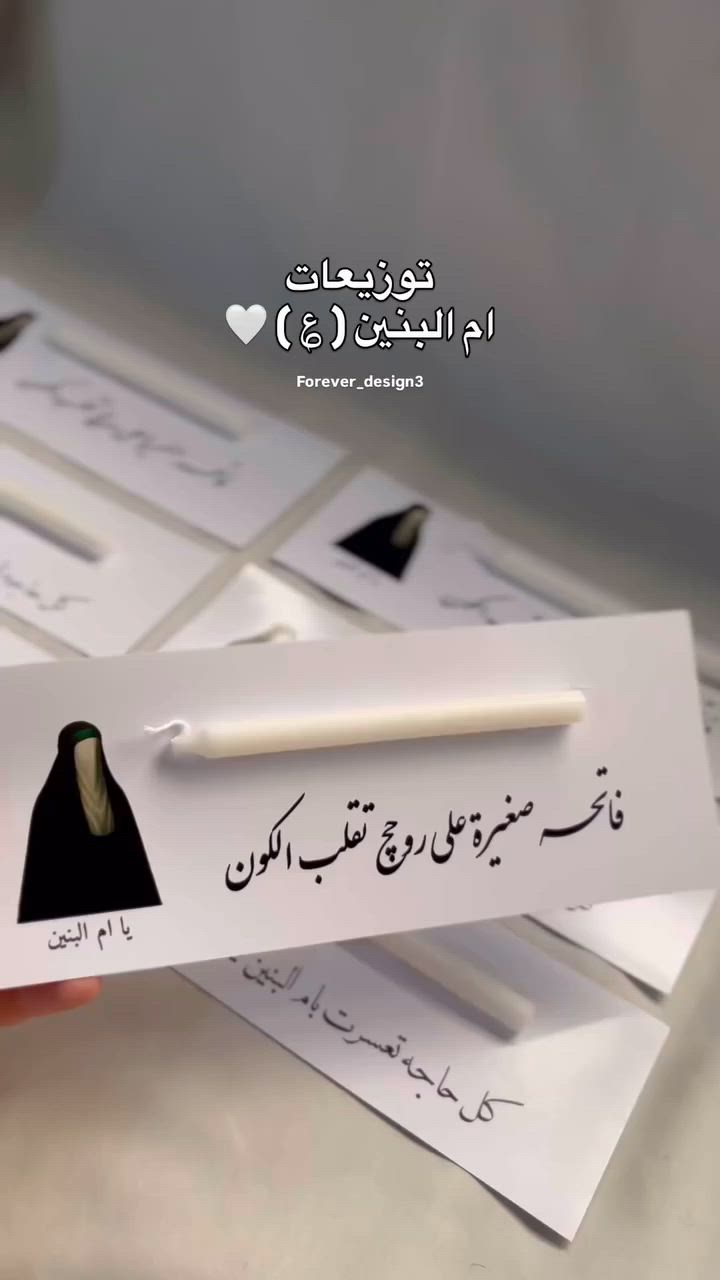 توزيعات
ام البنين (ع) 🤍
Forever_design3
فاتحه صغيرة على روحچ تقلب الكون
يا ام البنين
كل حاجه تعسرت بام البنين